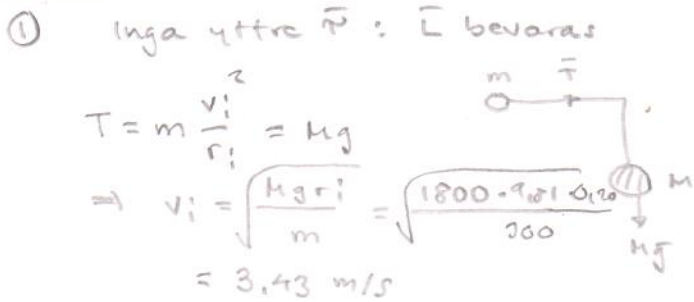 ① Inga yttre τ̄ : L̄ bevaras
m T̄
T = m vᵢ²/rᵢ = Mg
⇒ vᵢ = √(Mgrᵢ/m) = √(1800·9,81·0,20/300) M
Mḡ
= 3,43 m/s